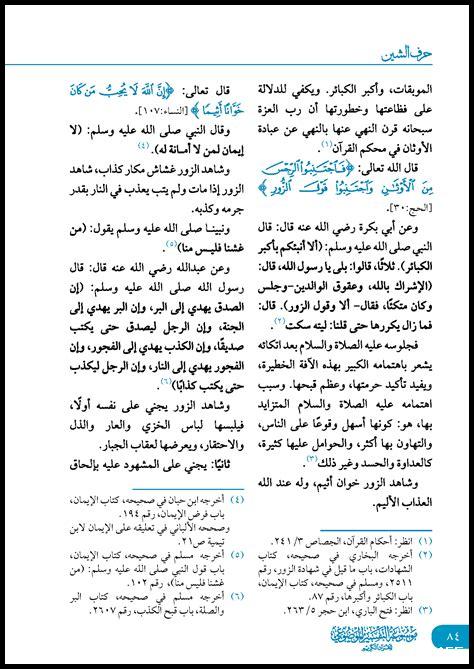 حرف الشين
الموبقات، وأكبر الكبائر. ويكفي للدلالة
على فظاعتها وخطورتها أن رب العزة
سبحانه قرن النهي عنها بالنهي عن عبادة
الأوثان في محكم القرآن(١).
قال الله تعالى: ﴿فَاجْتَنِبُوا الرِّجْسَ
مِنَ الْأَوْثَانِ وَاجْتَنِبُوا قَوْلَ الزُّورِ﴾
[الحج:٣٠].
وعن أبي بكرة رضي الله عنه قال: قال
النبي صلى الله عليه وسلم: (ألا أنبئكم بأكبر
الكبائر). ثلاثًا، قالوا: بلى يا رسول الله، قال:
(الإشراك بالله، وعقوق الوالدين-وجلس
وكان متكئًا، فقال- ألا وقول الزور). قال:
فما زال يكررها حتى قلنا: ليته سكت(٢).
فجلوسه عليه الصلاة والسلام بعد اتكائه
يشعر باهتمامه الكبير بهذه الآفة الخطيرة،
ويفيد تأكيد حرمتها، وعظم قبحها. وسبب
اهتمامه عليه الصلاة والسلام المتزايد
بها، هو: كونها أسهل وقوعًا على الناس،
والتهاون بها أكثر، والحوامل عليها كثيرة،
كالعداوة والحسد وغير ذلك(٣).
وشاهد الزور خوان أثيم، وله عند الله
العذاب الأليم.
(١) انظر: أحكام القرآن، الجصاص ٣/ ٢٤١.
(٢) أخرجه البخاري في صحيحه، كتاب
الشهادات، باب ما قيل في شهادة الزور، رقم
٢٥١١، ومسلم في صحيحه، كتاب الإيمان،
باب الكبائر وأكبرها، رقم ٨٧.
(٣) انظر: فتح الباري، ابن حجر ٥/ ٢٦٣.
قال تعالى: ﴿إِنَّ اللَّهَ لَا يُحِبُّ مَن كَانَ
خَوَّانًا أَثِيمًا﴾ [النساء:١٠٧].
وقال النبي صلى الله عليه وسلم: (لا
إيمان لمن لا أمانة له)(٤).
وشاهد الزور غشاش مكار كذاب، شاهد
الزور إذا مات ولم يتب يعذب في النار بقدر
جرمه وكذبه.
ونبينا صلى الله عليه وسلم يقول: (من
غشنا فليس منا)(٥).
وعن عبدالله رضي الله عنه قال: قال
رسول الله صلى الله عليه وسلم: (إن
الصدق يهدي إلى البر، وإن البر يهدي إلى
الجنة، وإن الرجل ليصدق حتى يكتب
صديقًا، وإن الكذب يهدي إلى الفجور، وإن
الفجور يهدي إلى النار، وإن الرجل ليكذب
حتى يكتب كذابًا)(٦).
وشاهد الزور يجني على نفسه أولًا،
فيلبسها لباس الخزي والعار والذل
والاحتقار، ويعرضها لعقاب الجبار.
ثانيًا: يجني على المشهود عليه بإلحاق
(٤) أخرجه ابن حبان في صحيحه، كتاب الإيمان،
باب فرض الإيمان، رقم ١٩٤.
وصححه الألباني في تعليقه على الإيمان لابن
تيمية ص٢١.
(٥) أخرجه مسلم في صحيحه، كتاب الإيمان،
باب قول النبي صلى الله عليه وسلم: (من
غشنا فليس منا)، رقم ١٠٢.
(٦) أخرجه مسلم في صحيحه، كتاب البر
والصلة، باب قبح الكذب، رقم ٢٦٠٧.
٨٤
موسوعة التفسير الموضوعي
للقرآن الكريم